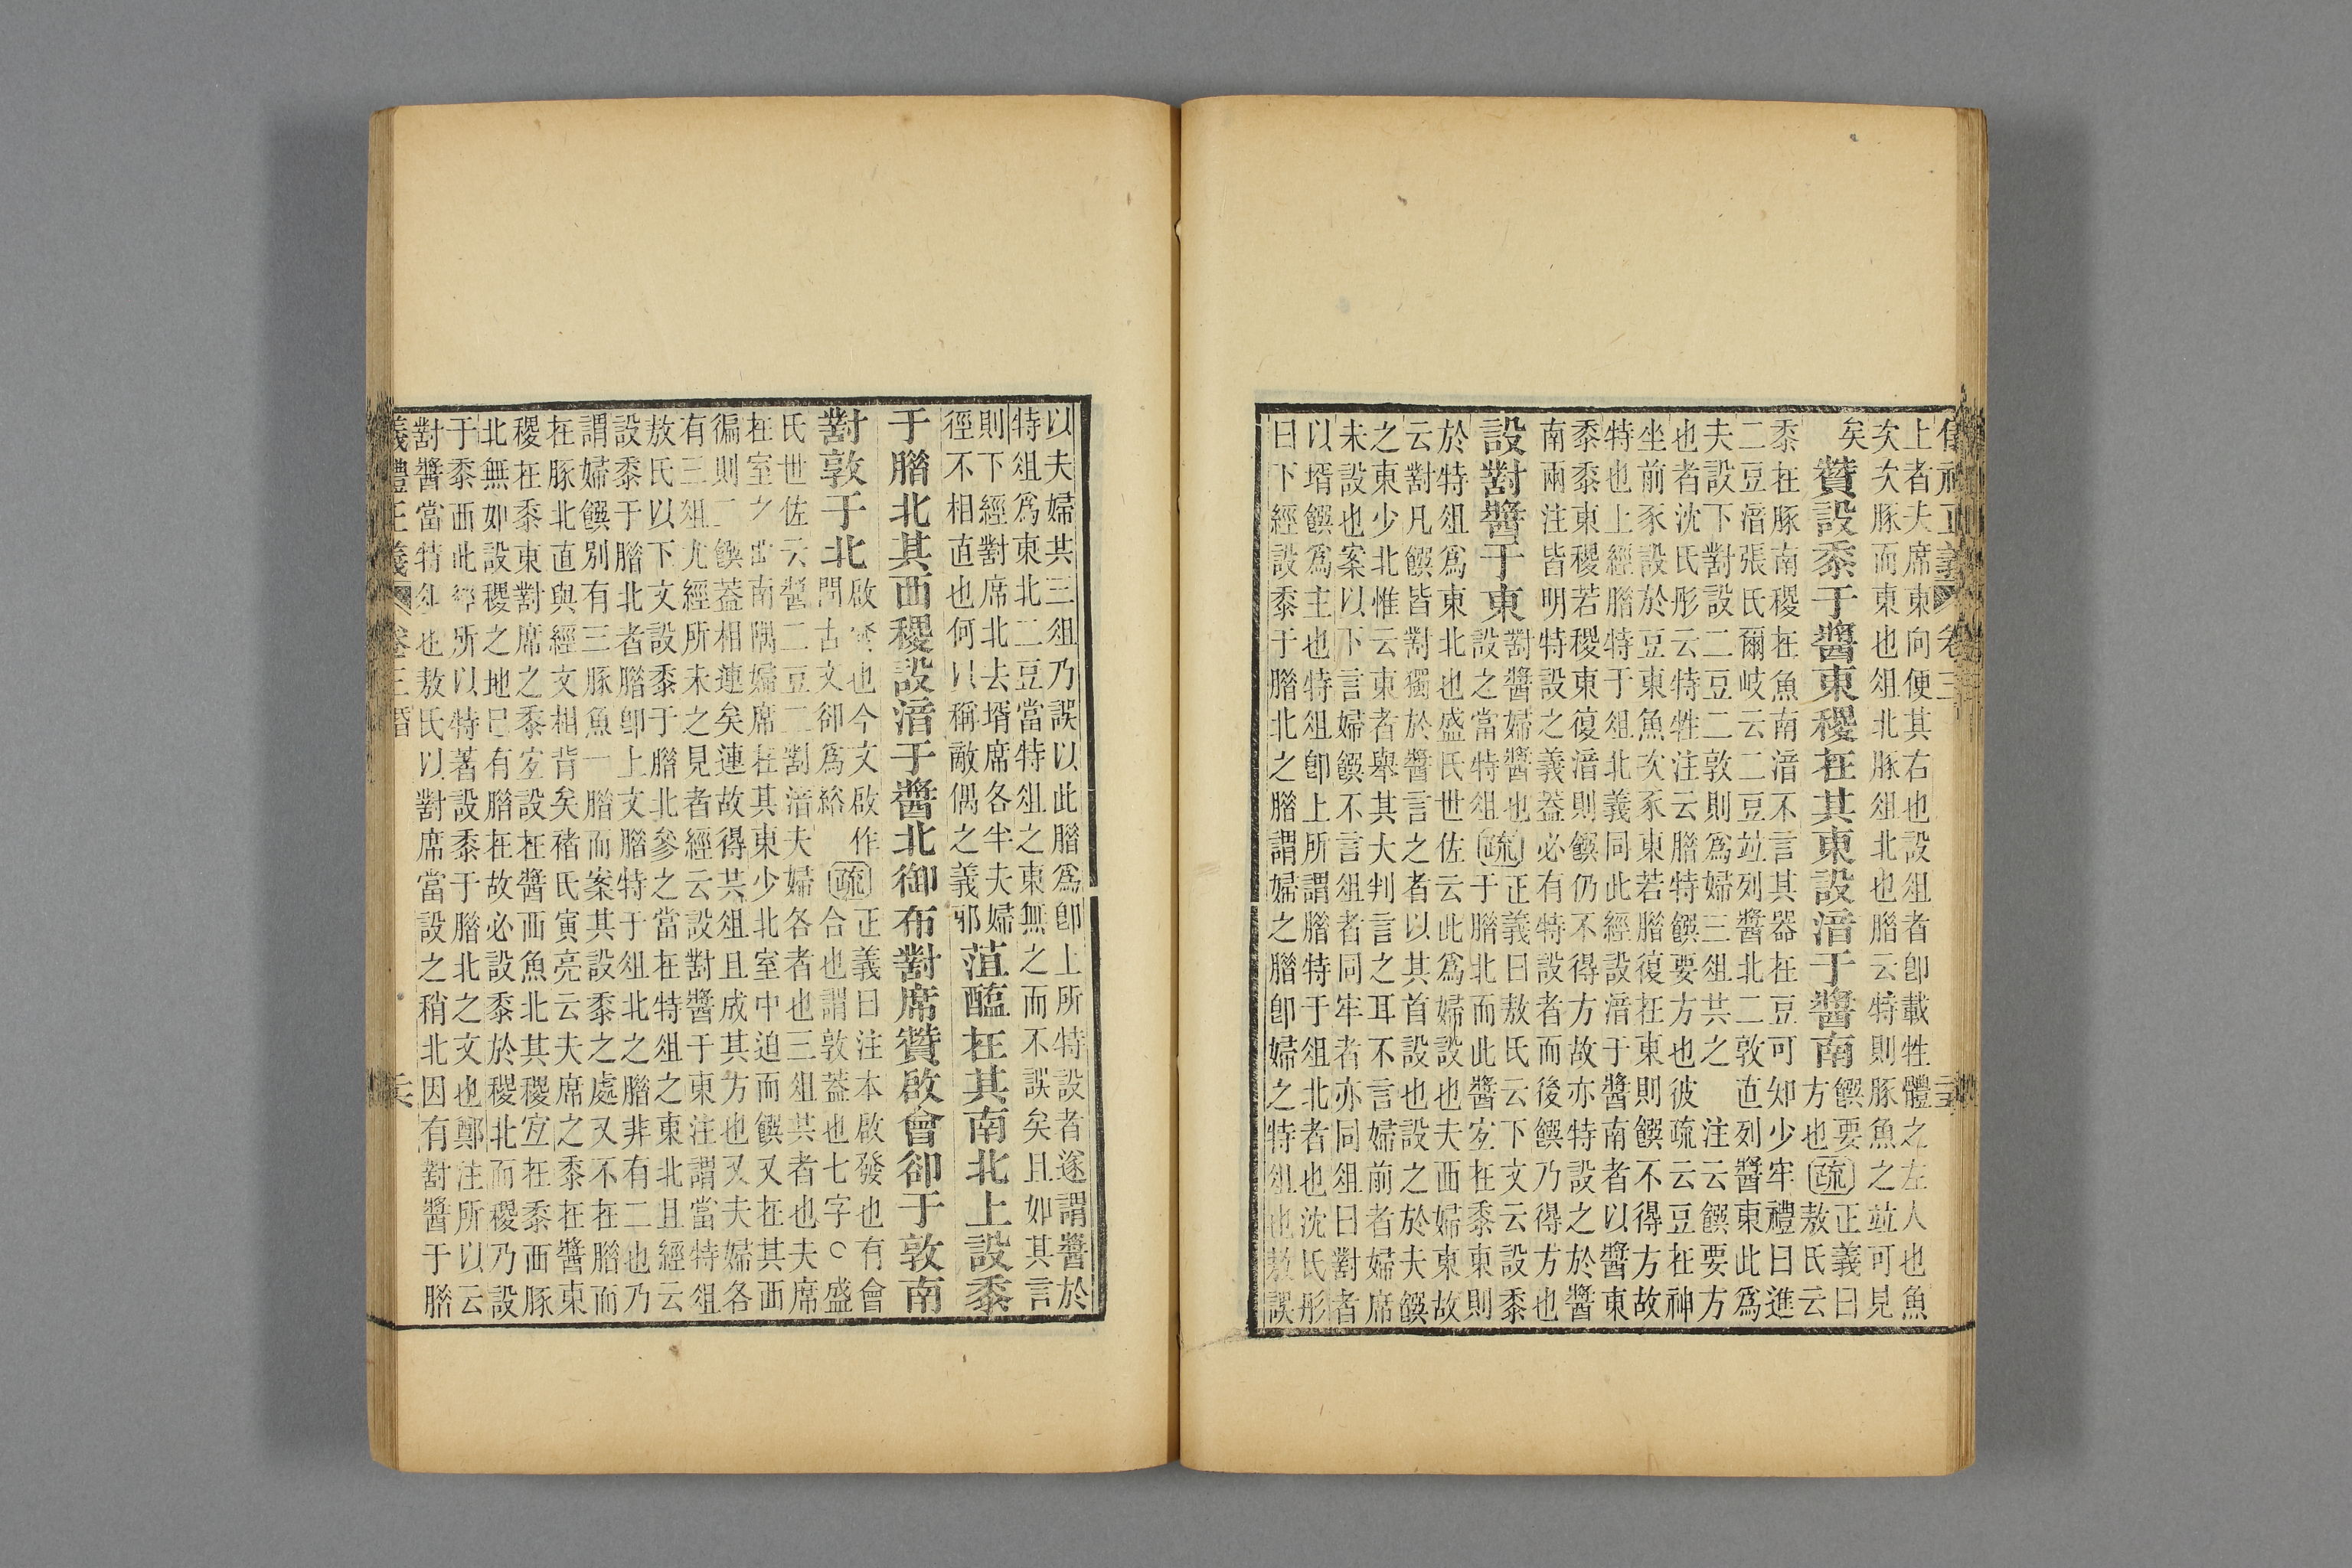 上者夫席東向便其右也設俎者卽載牲體之左人也魚
次次豚而東也俎北豚俎北也腊云特則豚魚之竝可見
矣
贊設黍于醬東稷在其東設湆于醬南
饌要
方也
疏
正義曰
敖氏云
黍在豚南稷在魚南湆不言其器在豆可知少牢禮曰進
二豆湆張氏爾岐云二豆竝列醬北二敦直列醬東此爲
夫設下對設二豆二敦則爲婦三俎共之
注云饌要方
也者沈氏彤云特牲注云腊特饌要方也彼疏云豆在神
坐前豕設於豆東魚次豕東若腊復在東則饌不得方故
特也上經腊特于俎北義同此經設湆于醬南者以醬東
黍黍東稷若稷東復湆則饌仍不得方故亦特設之於醬
南兩注皆明特設之義蓋必有特設者而後饌乃得方也
設對醬于東
對醬婦醬也
設之當特俎
疏
正義曰敖氏云下文云設黍
于腊北而此醬宜在黍東則
於特俎爲東北也盛氏世佐云此爲婦設也夫西婦東故
云對凡饌皆對獨於醬言之者以其首設也設之於夫饌
之東少北惟云東者舉其大判言之耳不言婦前者婦席
未設也案以下言婦饌不言俎者同牢者亦同俎曰對者
以壻饌爲主也特俎卽上所謂腊特于俎北者也沈氏彤
曰下經設黍于腊北之腊謂婦之腊卽婦之特俎也敖誤
以夫婦共三俎乃誤以此腊爲卽上所特設者遂謂醬於
特俎爲東北二豆當特俎之東無之而不誤矣且如其言
則下經對席北去壻席各半夫婦
徑不相直也何以稱敵偶之義邪
菹醢在其南北上設黍
于腊北其西稷設湆于醬北御布對席贊啟會卻于敦南
對敦于北
啟發也今文啟作
開古文卻爲綌
疏
正義曰注本啟發也有會
合也謂敦蓋也七字○盛
氏世佐云醬二豆二對湆夫婦各者也三俎共者也夫席
在室之西南隅婦席在其東少北室中迫而饌又在其西
徧則二饌蓋相連矣連故得共俎且成其方也又夫婦各
有三俎尤經所未之見者經云設對醬于東注謂當特俎
敖氏以下文設黍于腊北參之當在特俎之東北且經云
設黍于腊北者腊卽上文腊特于俎北之腊非有二也乃
謂婦饌別有三豚魚一腊而案其設黍之處又不在腊而
在豚北直與經文相背矣褚氏寅亮云夫席之黍在醬東
稷在黍東對席之黍宜設在醬西魚北其稷宜在黍西豚
北無如設稷之地已有腊在故必設黍於稷北而稷乃設
于黍西此經所以特著設黍于腊北之文也鄭注所以云
對醬當特俎也敖氏以對席當設之稍北因有對醬于腊